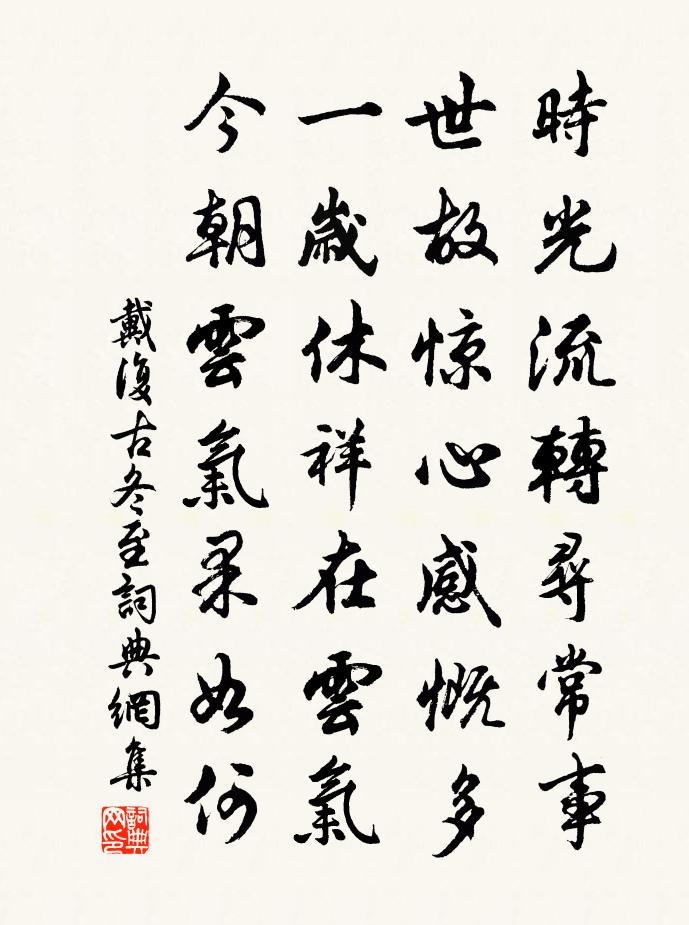 時光流轉尋常事
世故惊心感慨多
一歲休祥在雲氣
今朝雲氣果如何
戴復古冬至詞典網集
詞典网印